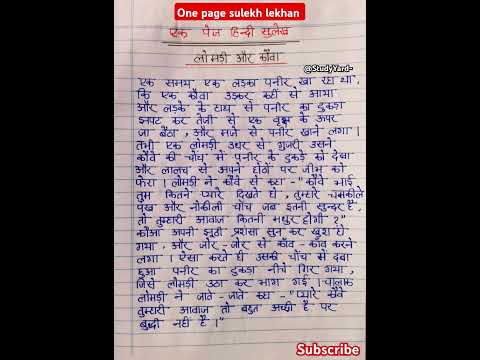 One page sulekh lekhan
एक पेज हिन्दी सुलेख
लोमड़ी और कौवा
@StudyYard-
एक समय एक लड़का पनीर खा रहा था,
कि एक कौवा उड़कर कहीं से आया
और लड़के के हाथ से पनीर का टुकड़ा
झपट कर तेजी से एक वृक्ष के ऊपर
जा बैठा, और मजे से पनीर खाने लगा।
तभी एक लोमड़ी उधर से गुजरी उसने
कौवे की चोंच में पनीर के टुकड़े को देखा
और लालच से अपने होठों पर जीभ को
फेरा। लोमड़ी ने कौवे से कहा - "कौवे भाई
तुम कितने प्यारे दिखते हो, तुम्हारे चमकीले
पंख और नोकीली चोंच जब इतनी सुन्दर है,
तो तुम्हारी आवाज कितनी मधुर होगी?"
कौआ अपनी झूठी प्रशंसा सुन कर खुश हो
गया, और जोर - जोर से काँव - काँव करने
लगा। ऐसा करते ही उसकी चोंच से दबा
हुआ पनीर का टुकड़ा नीचे गिर गया,
जिसे लोमड़ी उठा कर भाग गई। चालाक
लोमड़ी ने जाते - जाते कहा - "प्यारे कौवे
तुम्हारी आवाज तो बहुत अच्छी है पर
बुद्धी नहीं है।"
Subscribe